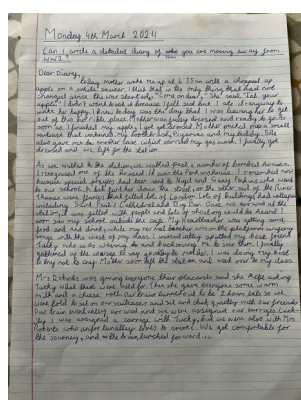 Monday 4th March 2024
Can I write a detailed diary of who you are moving away from
WW2?
Dear Diary,
Today mother woke me up at 6:35am with a chopped up
apple on a small saucer. I think that is the only thing that had not
changed since the war started. "Come on dear," she said. "Eat your
apple." I didn't want to eat because I felt sad but I ate it anyway to
make her happy. I knew today was the day that I was leaving her to get
out of this horrible place. Mother was fully dressed and ready to go. As
soon as I finished my apple, I got got dressed. Mother packed me a small
suitcase that contained my toothbrush, Pyjamas and my teddy. She
also gave me another case which carried my gas mask. I finally got
dressed and we left for the station.
As we walked to the station, we walked past a number of bombed houses.
I recognised one of the houses! It was the Parkinsons. I remembered now
because several prayers had been said to Nigel and Mary Thomas who went
to our school. A bit further down the street, on the other side of the River
Thames were flames that filled lots of London. Lots of buildings had collapsed
including Saint Paul's Cathedral and Big Ben. Once we arrived at the
station, it was filled with people and lots of shouting could be heard. I
soon saw my school outside the cafe. My Headteacher was getting some
food and drink while my normal teacher was on the platform singing
songs with the rest of my class. I immediately spotted my best friend
Tucky who was waving to and beckoning me to see them. I finally
gathered up the courage to say goodbye to mother. I was doing my best
to try not to cry. Mother soon left the station and I went over to my class.
Mrs Roberts was giving everyone their placecards and she kept asking
Tucky what they were used for. Then she gave everyone some warm
milk and a cheese roll. Our train turned out to be 2 hours late so we
were told to sit on our suitcases and sit and chat quietly with our friends.
Our train eventually arrived and we were assigned our carriages. Luck-
ily I was assigned a carriage with Tucky, but we were also with Mrs
Roberts who unfortunately loves to sneak. We got comfortable for
the journey, and the train lurched forward...